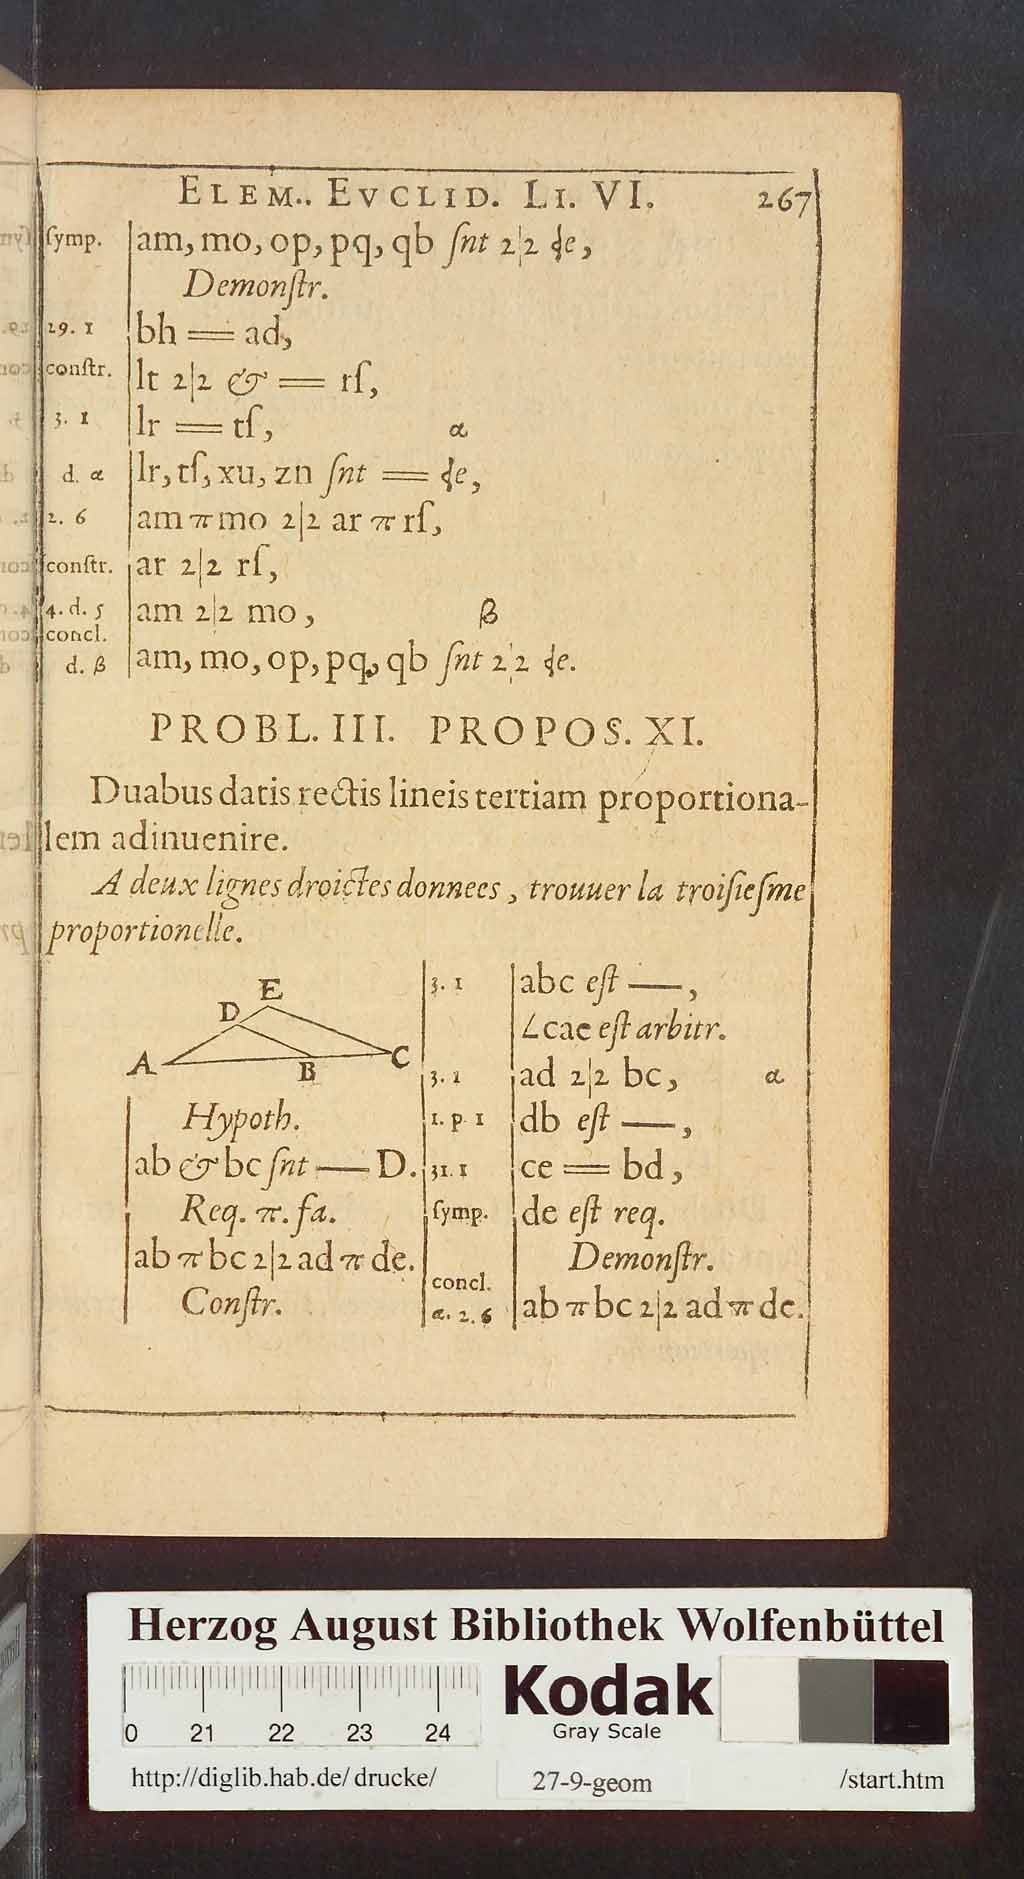 ELEM.. EVCLID. LI. VI. 267
ſymp. am, mo, op, pq, qb ſnt 2|2 ɖe,
Demonſtr.
29. 1 bh = ad,
conſtr. lt 2|2 & = rſ,
3. 1 lr = tſ, α
d. α lr, tſ, xu, zn ſnt = ɖe,
2. 6 am π mo 2|2 ar π rſ,
conſtr. ar 2|2 rſ,
4. d. 5 am 2|2 mo, β
concl.
d. β am, mo, op, pq, qb ſnt 2|2 ɖe.
PROBL. III. PROPOS. XI.
Duabus datis rectis lineis tertiam proportiona-
lem adinuenire.
A deux lignes droictes donnees, trouuer la troiſieſme
proportionelle.
E
D
A B C
Hypoth.
ab & bc ſnt — D.
Req. π. fa.
ab π bc 2|2 ad π de.
Conſtr.
3. 1 abc eſt —,
∠cae eſt arbitr.
3. 1 ad 2|2 bc, α
1. p. 1 db eſt —,
31. 1 ce = bd,
ſymp. de eſt req.
Demonſtr.
concl.
α. 2. 6 ab π bc 2|2 ad π de.
Herzog August Bibliothek Wolfenbüttel
Kodak
Gray Scale
0 21 22 23 24
http://diglib.hab.de/drucke/ 27-9-geom /start.htm